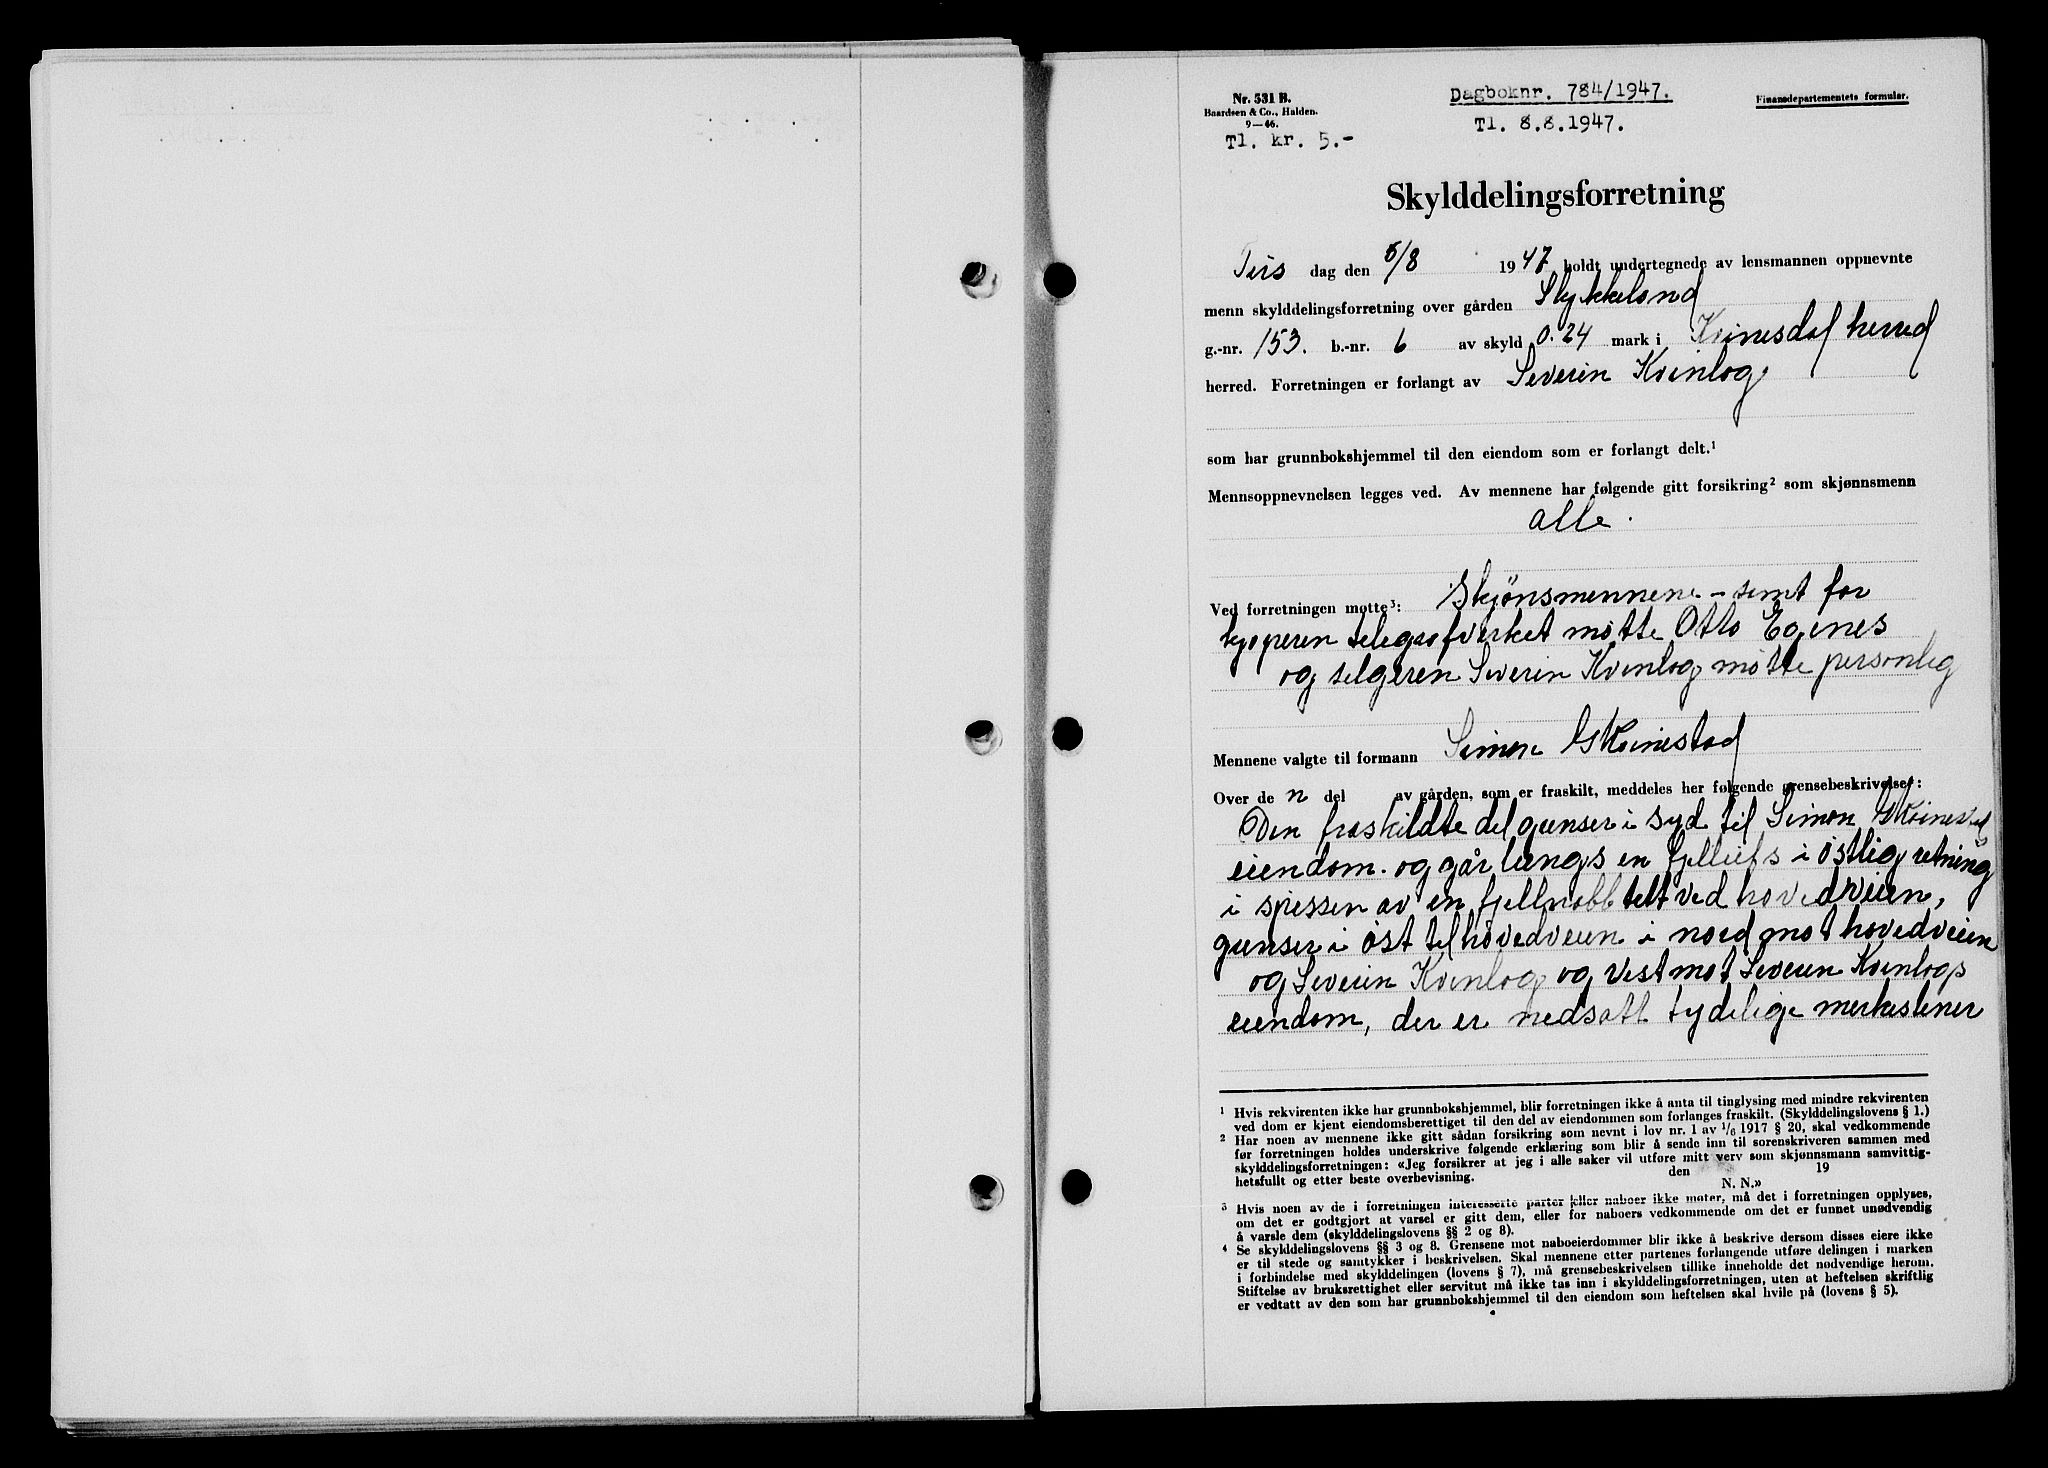 Nr. 531 B.
Baardsen & Co., Halden.
9—46.
Tl. kr. 5.-
Dagboknr. 784/1947.
Tl. 8.8.1947.
Finansdepartementets formular.
Skylddelingsforretning
Tirs dag den 5/8 1947 holdt undertegnede av lensmannen oppnevnte
menn skylddelingsforretning over gården
g.-nr. 153. b.-nr. 6 av skyld 0.24 mark i Kvinesdal herred
herred. Forretningen er forlangt av Severin Kvinlog
som har grunnbokshjemmel til den eiendom som er forlangt delt.¹
Mennsoppnevnelsen legges ved. Av mennene har følgende gitt forsikring² som skjønnsmenn
alle.
Ved forretningen møtte³: Skjönsmennene - samt for
kjøperen telegrafverket møtte Otto Egenes
og selgeren Severin Kvinlog møtte personleg
Mennene valgte til formann Simon G Kvinestad
Over de n del av gården, som er fraskilt, meddeles her følgende grensebeskrivelse⁴:
Den fraskildte del grenser i syd til Simon G Kvinestad
eiendom. og går lengs en i østlig retning
i spissen av en ved hovedveien,
grenser i øst til hovedveien i nord mot hovedveien
og Severin Kvinlog og vest mot Severin Kvinlogs
eiendom, der er nedsatt tydelige merkestener
¹ Hvis rekvirenten ikke har grunnbokshjemmel, blir forretningen ikke å anta til tinglysing med mindre rekvirenten
ved dom er kjent eiendomsberettiget til den del av eiendommen som forlanges fraskilt. (Skylddelingslovens § 1.)
² Har noen av mennene ikke gitt sådan forsikring som nevnt i lov nr. 1 av 1/6 1917 § 20, skal vedkommende
før forretningen holdes underskrive følgende erklæring som blir å sende inn til sorenskriveren sammen med
skylddelingsforretningen: «Jeg forsikrer at jeg i alle saker vil utføre mitt verv som skjønnsmann samvittig-
hetsfullt og etter beste overbevisning. den 19
N. N.»
³ Hvis noen av de i forretningen interesserte parter eller naboer ikke møter, må det i forretningen opplyses,
om det er godtgjort at varsel er gitt dem, eller for naboers vedkommende om det er funnet unødvendig
å varsle dem (skylddelingslovens §§ 2 og 8).
⁴ Se skylddelingslovens §§ 3 og 8. Grensene mot naboeierdommer blir ikke å beskrive dersom disses eiere ikke
er til stede og samtykker i beskrivelsen. Skal mennene etter partenes forlangende utføre delingen i marken
i forbindelse med skylddelingen (lovens § 7), må grensebeskrivelsen tillike inneholde det nødvendige herom.
Stiftelse av bruksrettighet eller servitut må ikke tas inn i skylddelingsforretningen, uten at heftelsen skriftlig
er vedtatt av den som har grunnbokshjemmel til den eiendom som heftelsen skal hvile på (lovens § 5).